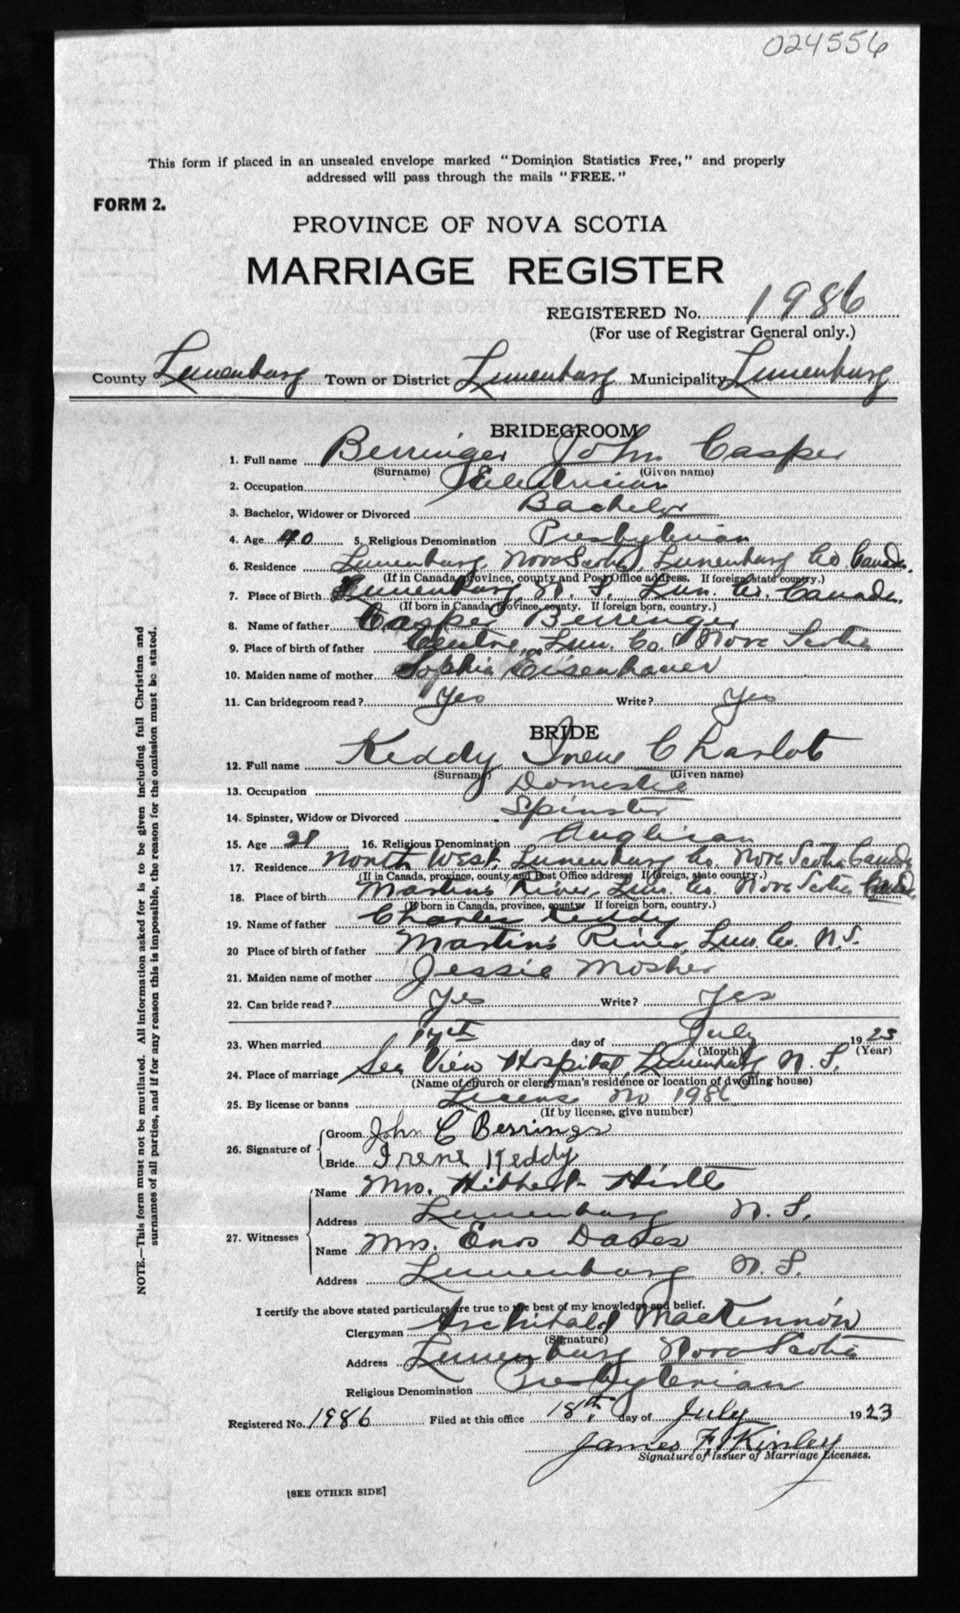 024556
This form if placed in an unsealed envelope marked "Dominion Statistics Free," and properly
addressed will pass through the mails "FREE."
FORM 2.
PROVINCE OF NOVA SCOTIA
MARRIAGE REGISTER
REGISTERED No. 1986
(For use of Registrar General only.)
County Lunenburg Town or District Lunenburg Municipality Lunenburg
BRIDEGROOM
1. Full name Berringer John Casper
(Surname) (Given name)
2. Occupation
3. Bachelor, Widower or Divorced Bachelor
4. Age 40 5. Religious Denomination Presbyterian
6. Residence Lunenburg, Nova Scotia, Lunenburg Co Canada.
(If in Canada, province, county and Post Office address. If foreign, state country.)
7. Place of Birth Lunenburg, N. S. Lun. Co. Canada.
(If born in Canada, province, county. If foreign born, country.)
8. Name of father Casper Berringer
9. Place of birth of father Centre, Lun. Co. Nova Scotia
10. Maiden name of mother Sophia Eisenhauer
11. Can bridegroom read? Yes Write? Yes
BRIDE
12. Full name Keddy Irene Charlot
(Surname) (Given name)
13. Occupation Domestic
14. Spinster, Widow or Divorced Spinster
15. Age 28 16. Religious Denomination Anglican
17. Residence North West, Lunenburg Co. Nova Scotia Canada
(If in Canada, province, county and Post Office address If foreign, state country.)
18. Place of birth Martins River, Lun. Co. Nova Scotia Canada.
(If born in Canada, province, county If foreign born, country.)
19. Name of father Charles Keddy
20 Place of birth of father Martin's River, Lun. Co. N.S.
21. Maiden name of mother Jessie Mosher
22. Can bride read? Yes Write? Yes
23. When married 17th day of July 1923
(Month) (Year)
24. Place of marriage Sea View Hospital, Lunenburg N. S.
(Name of church or clergyman's residence or location of dwelling house)
25. By license or banns License No 1986
(If by license, give number)
26. Signature of Groom John C Berringer
Bride Irene Keddy
27. Witnesses Name Mrs. Hibbert Hirtle
Address Lunenburg N. S.
Name Mrs. Enos Dares
Address Lunenburg N. S.
I certify the above stated particulars are true to the best of my knowledge and belief.
Clergyman Archibald MacKinnon
(Signature)
Address Lunenburg Nova Scotia
Religious Denomination Presbyterian
Registered No. 1986 Filed at this office 18th day of July 1923
James F. Kinley
Signature of Issuer of Marriage Licenses.
[SEE OTHER SIDE]
NOTE.—This form must not be mutilated. All information asked for is to be given including full Christian and
surnames of all parties, and if for any reason this is impossible, the reason for the omission must be stated.